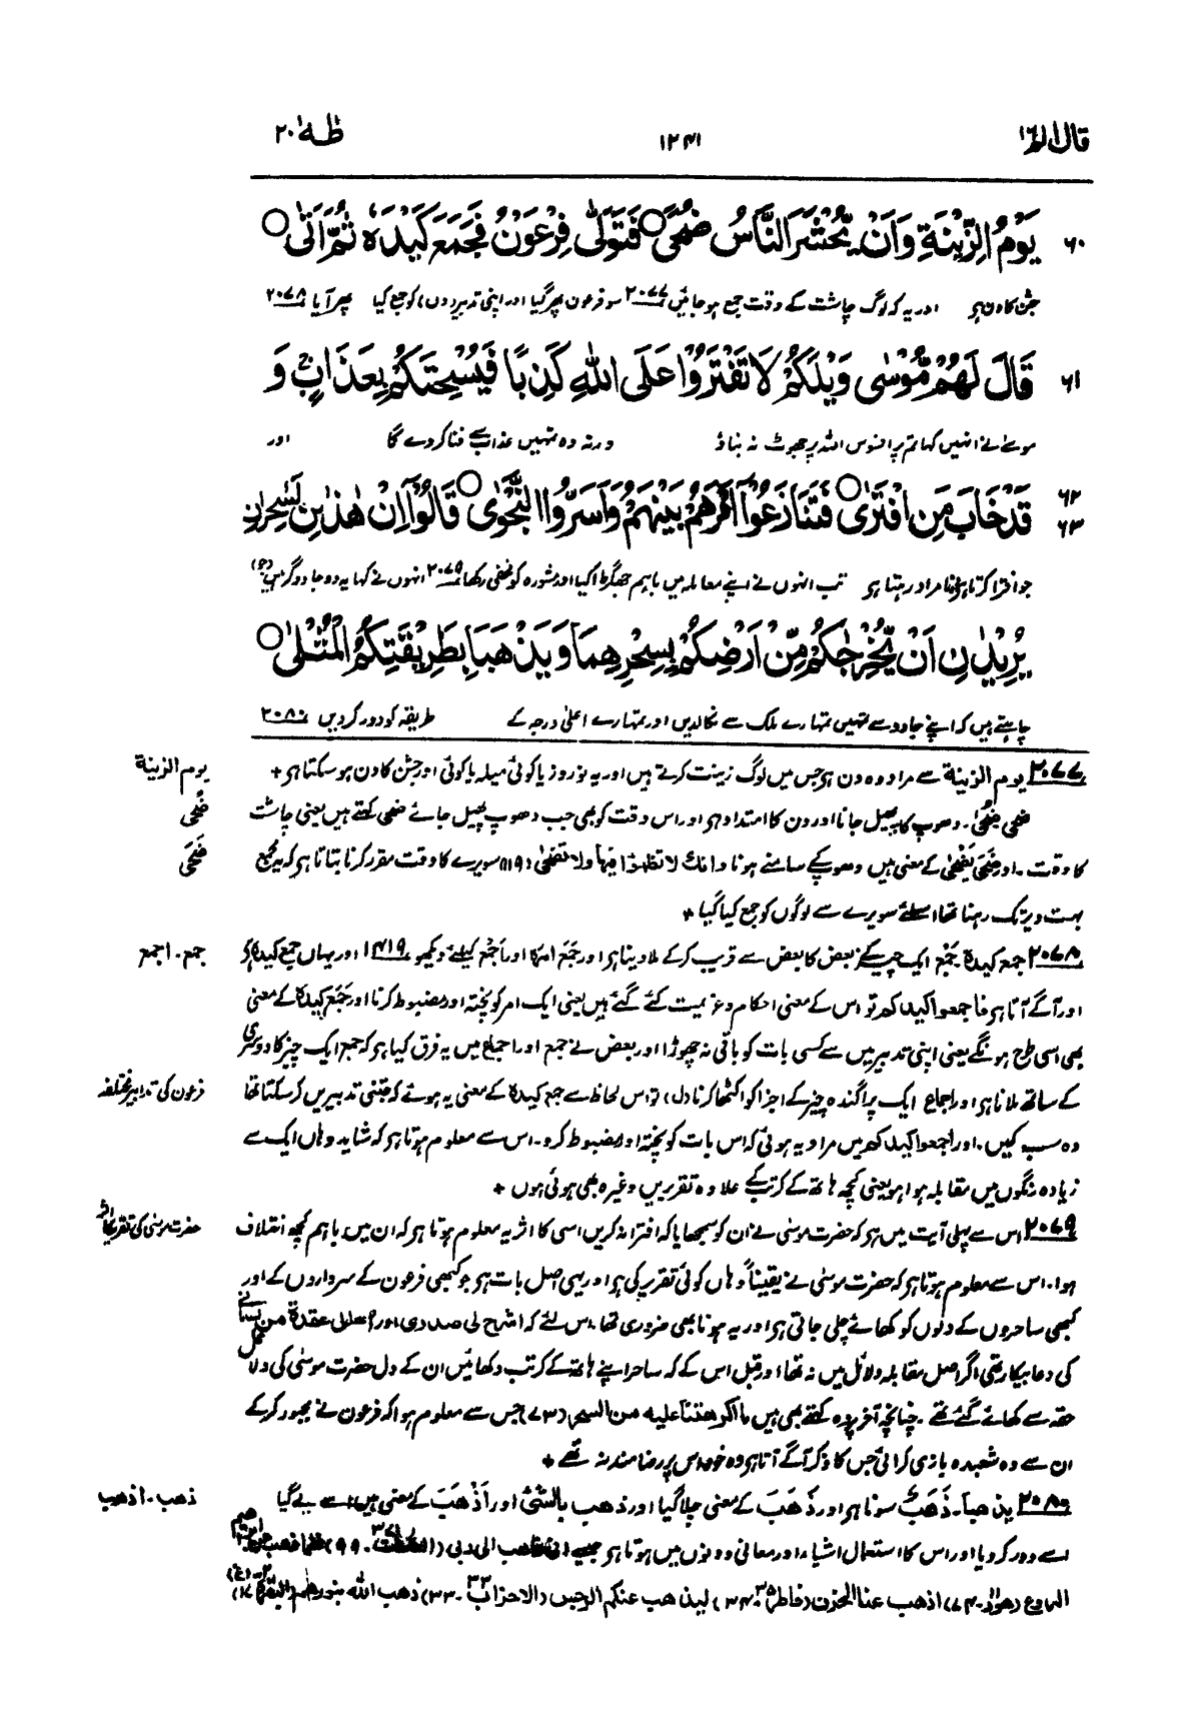 قال الم ١٦ ١٢٤١ طٰهٰ ٢٠
٦٠ يَوْمُ الزِّيْنَةِ وَاَنْ يُّحْشَرَ النَّاسُ ضُحًى ○ فَتَوَلّٰى فِرْعَوْنُ فَجَمَعَ كَيْدَهٗ ثُمَّ اَتٰى ○
جشن کا دن ہو اور یہ کہ لوگ چاشت کے وقت جمع ہو جائیں ٢٠٧٧ سو فرعون پھر گیا اور اپنی تدبیر(وں) کو جمع کیا پھر آیا ٢٠٧٨
٦١ قَالَ لَهُمْ مُّوْسٰى وَيْلَكُمْ لَا تَفْتَرُوْا عَلَى اللّٰهِ كَذِبًا فَيُسْحِتَكُمْ بِعَذَابٍ ۚ وَ
موسےٰ نے انہیں کہا تم پر افسوس اللہ پر جھوٹ نہ بناؤ ورنہ وہ تمہیں عذاب سے فنا کر دے گا اور
٦٢ ٦٣ قَدْ خَابَ مَنِ افْتَرٰى ○ فَتَنَازَعُوْٓا اَمْرَهُمْ بَيْنَهُمْ وَاَسَرُّوا النَّجْوٰى ○ قَالُوْٓا اِنْ هٰذٰىنِ لَسٰحِرٰنِ
جو افترا کرتا ہو نامراد رہتا ہو تب انہوں نے اپنے معاملہ میں باہم جھگڑا کیا اور مشورہ کو مخفی رکھا ٢٠٧٩ انہوں نے کہا یہ دو جادوگر ہیں (جو)
يُرِيْدٰنِ اَنْ يُّخْرِجٰكُمْ مِّنْ اَرْضِكُمْ بِسِحْرِهِمَا وَيَذْهَبَا بِطَرِيْقَتِكُمُ الْمُثْلٰى ○
چاہتے ہیں کہ اپنے جادو سے تمہیں تمہارے ملک سے نکالدیں اور تمہارے اعلیٰ درجہ کے طریقہ کو دور کر دیں ٢٠٨٠
٢٠٧٧ یوم الزینة سے مراد وہ دن ہو جس میں لوگ زینت کرتے ہیں اور یہ نوروز یا کوئی میلہ یا کوئی اور جشن کا دن ہو سکتا ہو + یوم الزینة
ضحی ضُحًی۔ دھوپ کا پھیل جانا اور دن کا امتداد ہو اور اس وقت کو بھی جب دھوپ پھیل جائے ضحی کہتے ہیں یعنی چاشت ضُحًی
کا وقت۔ اور ضَحِیَ یَضْحٰی کے معنی ہیں دھوپ کے سامنے ہونا وانك لا تظمؤا فيها ولا تضحٰى (١١٩) سویرے کا وقت مقرر کرنا بتاتا ہو کہ یہ مجمع ضَحِیَ
بہت دیر تک رہنا تھا اسلئے سویرے سے لوگوں کو جمع کیا گیا +
٢٠٧٨ جمع کیدہ۔ جَمْع ایک چیز کے بعض کا بعض سے قریب کر کے ملا دینا ہو اور جَمَعَ امرَہٗ اور اَجْمَعَ کیلئے دیکھو ١٤١٩ اور یہاں جمع کیدہ ہو جمع۔ اجمع
اور آگے آتا ہو فاجمعوا کیدکم تو اس کے معنی احکام و عزیمت کئے گئے ہیں یعنی ایک امر کو پختہ اور مضبوط کرنا اور جَمَعَ کیدَہ کے معنی
بھی اسی طرح ہونگے یعنی اپنی تدبیر میں سے کسی بات کو باقی نہ چھوڑا اور بعض نے جمع اور اجماع میں یہ فرق کیا ہو کہ جمع ایک چیز کا دوسری
کے ساتھ ملانا ہو اور اجماع ایک پراگندہ چیز کے اجزا کو اکٹھا کرنا (ل) تو اس لحاظ سے جمع کیدہ کے معنی یہ ہوئے کہ جتنی تدبیریں کر سکتا تھا فرعون کی تدابیر مختلفہ
وہ سب کیں۔ اور اجمعوا کیدکم میں مراد یہ ہوئی کہ اس بات کو پختہ اور مضبوط کرو۔ اس سے معلوم ہوتا ہو کہ شاید وہاں ایک سے
زیادہ رنگوں میں مقابلہ ہوا ہو یعنی کچھ ہاتھ کے کرتب کے علاوہ تقریریں وغیرہ بھی ہوئی ہوں +
٢٠٧٩ اس سے پہلی آیت میں ہو کہ حضرت موسٰی نے ان کو سمجھایا کہ افترا نہ کریں اسی کا اثر یہ معلوم ہوتا ہو کہ ان میں باہم کچھ اختلاف حضرت موسٰی کی تقریر کا اثر
ہوا۔ اس سے معلوم ہوتا ہو کہ حضرت موسٰی نے یقیناً وہاں کوئی تقریر کی ہو اور یہی اصل بات ہو جو کبھی فرعون کے سرداروں کے اور
کبھی ساحروں کے دلوں کو کھائے چلی جاتی ہو اور یہ ہونا بھی ضروری تھا۔ اس لئے کہ اشرح لی صدری اور احلل عقدة من لسانی
کی دعا بیکار تھی اگر اصل مقابلہ دلائل میں نہ تھا اور قبل اس کے کہ ساحر اپنے ہاتھ کے کرتب دکھائیں ان کے دل حضرت موسٰی کی دلائل
حقہ سے کھائے گئے تھے۔ چنانچہ آخر پر وہ کہتے بھی ہیں ما اكرهتنا عليه من السحر (٧٣) جس سے معلوم ہوا کہ فرعون نے مجبور کر کے
ان سے وہ شعبدہ بازی کرائی جس کا ذکر آگے آتا ہو وہ خود اس پر رضامند نہ تھے +
٢٠٨٠ یذھبا۔ ذَھَبٌ سونا ہو اور ذَھَبَ کے معنی چلا گیا اور ذھب بالشئ اور اَذْھَبَ کے معنی ہیں اسے لے گیا ذھب۔ اذھب
اسے دور کر دیا اور اس کا استعمال اشیاء اور معانی دونوں میں ہوتا ہو جیسے انی ذاهب الی ربی (الصّٰفّٰت ٣٧۔ ٩٩) فلما ذهب عن ابراهيم
الروع (هود۔ ٧٤) اذهب عنا الحزن (فاطر ٣٥۔ ٣٤) ليذهب عنكم الرجس (الاحزاب ٣٣۔ ٣٣) ذهب الله بنورهم (البقرة ٢۔ ١٧) (غ)